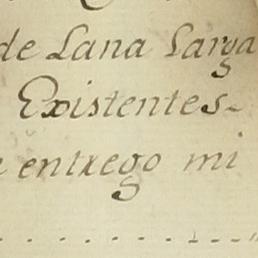 de Lana Larga
Existentes-
e entrego mi